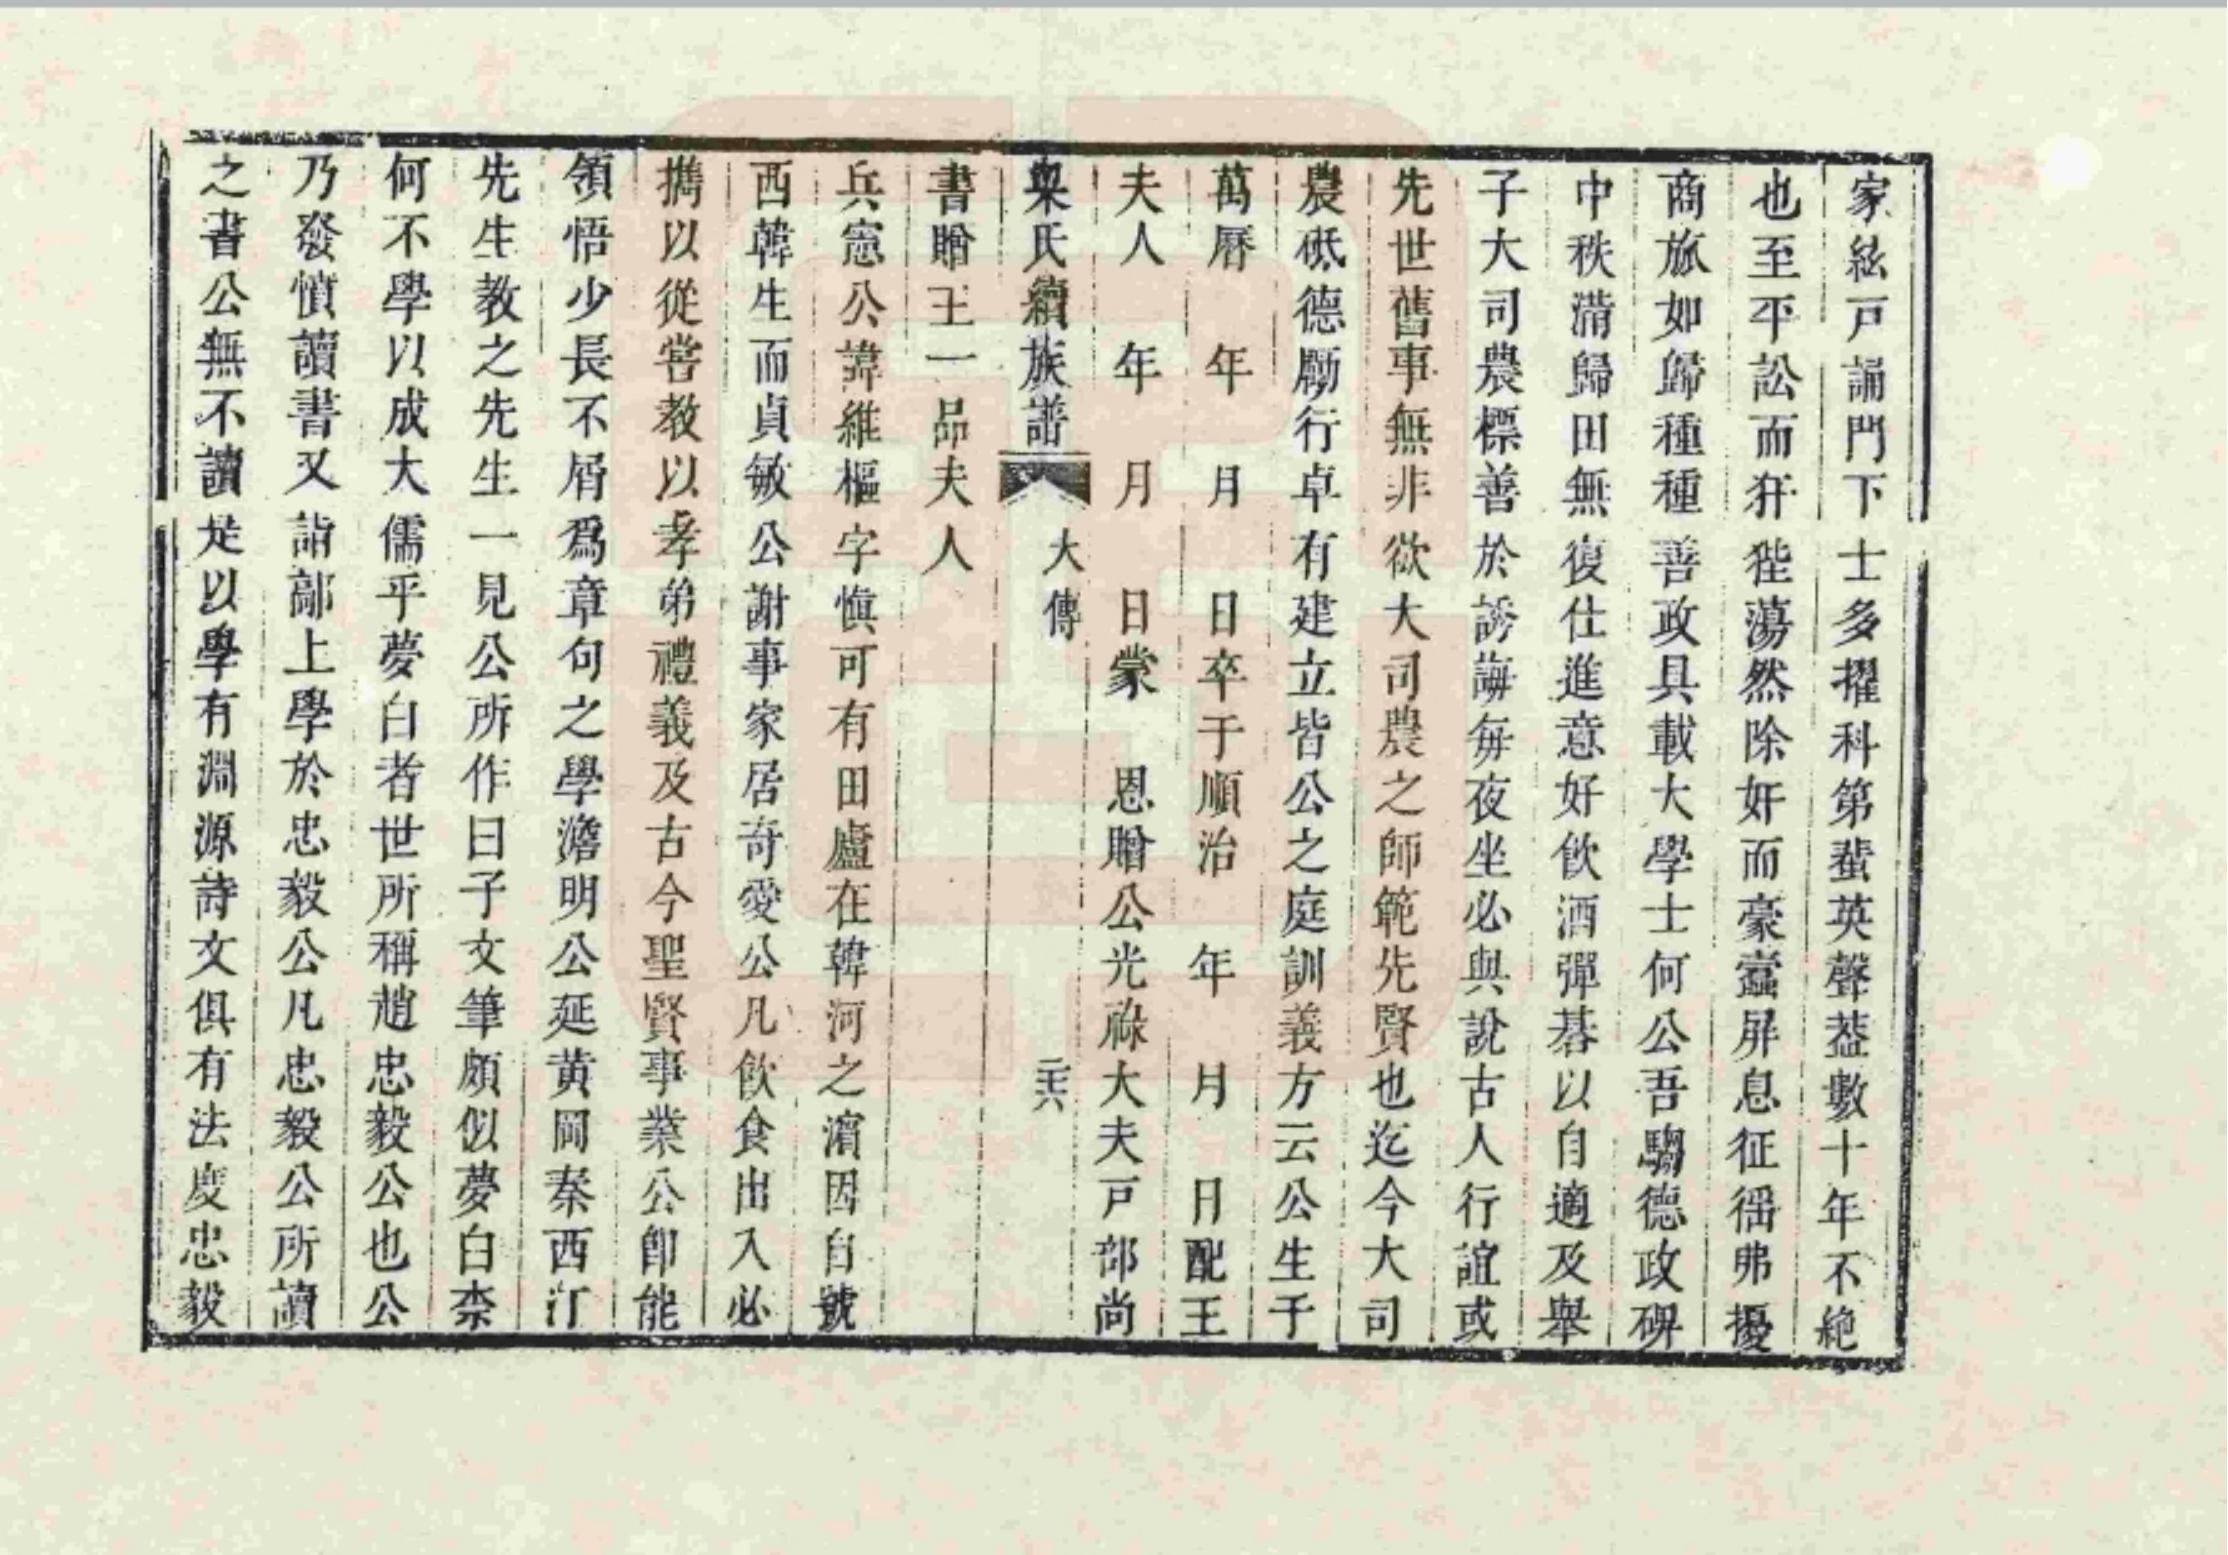 家絃戸誦門下士多擢科第蜚英聲葢數十年不絶
也至平訟而犴狴蕩然除奸而豪蠹屏息征徭弗擾
商旅如歸種種善政具載大學士何公吾騶德政碑
中秩滿歸田無復仕進意好飲酒彈碁以自適及舉
子大司農標善於誘誨毎夜坐必與說古人行誼或
先世舊事無非欲大司農之師範先賢也迄今大司
農砥德勵行卓有建立皆公之庭訓義方云公生于
萬曆　年　月　日卒于順治　年　月　日配王
夫人　年　月　日蒙　恩贈公光祿大夫戸部尚
梁氏續族譜　大傳　二六
書贈王一品夫人
兵憲公諱維樞字愼可有田廬在韓河之濵因自號
西韓生而貞敏公謝事家居奇愛公凡飲食出入必
攜以從嘗教以孝弟禮義及古今聖賢事業公卽能
領悟少長不屑爲章句之學澹明公延黄岡秦西汀
先生教之先生一見公所作曰子文筆頗似夢白柰
何不學以成大儒乎夢白者世所稱趙忠毅公也公
乃發憤讀書又詣鄗上學於忠毅公凡忠毅公所讀
之書公無不讀是以學有淵源詩文俱有法度忠毅